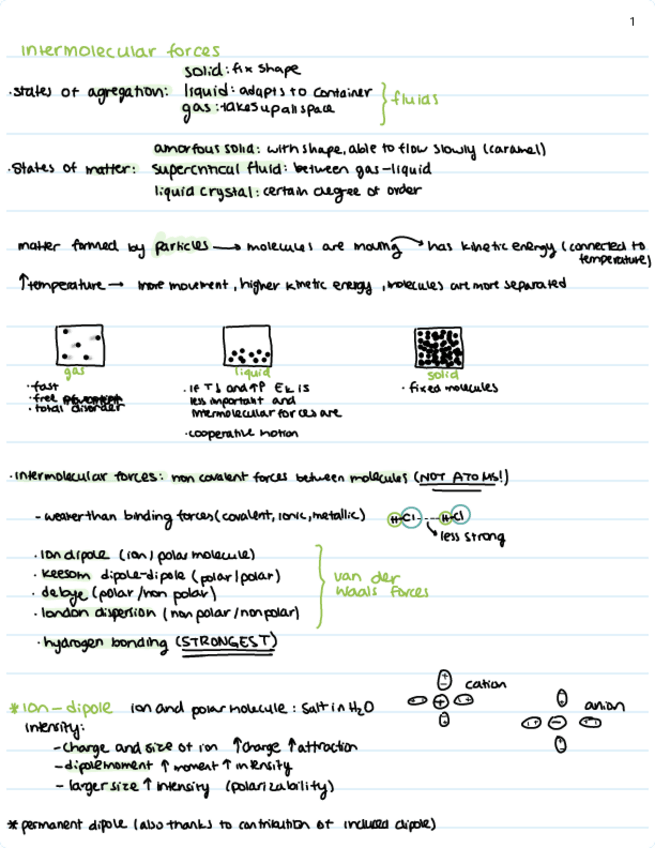 1
intermolecular forces
solid: fix shape
·states of agregation: liquid: adapts to container
gas: takes up all space
fluids
amorfous solid: with shape, able to flow slowly (caramel)
·States of matter: supercritical fluid: between gas-liquid
liquid crystal: certain degree of order
matter formed by particles → molecules are moving → has kinetic energy (connected to
temperature)
↑temperature → more movement, higher kinetic energy, molecules are more separated
gas
·fast
·free
·total disorder
liquid
·If T↓ and ↑P Ek is
less important and
intermolecular forces are
·cooperative motion
solid
·fixed molecules
·Intermolecular forces: non covalent forces between molecules (NOT ATOMS!)
-weaker than binding forces (covalent, ionic, metallic)
H-Cl---H-Cl
less strong
·Ion dipole (ion/polar molecule)
·keesom dipole-dipole (polar/polar)
·debye (polar/non polar)
·london dispersion (non polar/nonpolar)
van der
waals forces
·hydrogen bonding (STRONGEST)
*Ion-dipole ion and polar molecule: salt in H₂O
cation
anion
Intensity:
-charge and size of ion ↑charge ↑attraction
-dipole moment ↑ moment ↑ intensity
-larger size ↑ intensity (polarizability)
*permanent dipole (also thanks to contribution of included dipole)